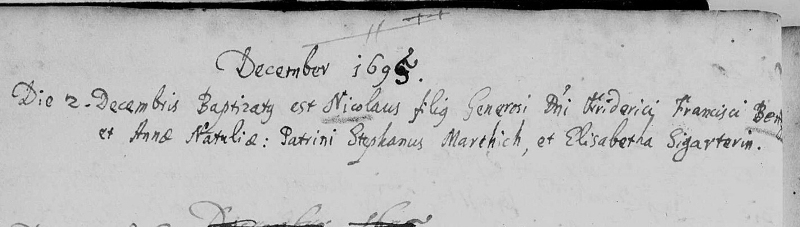 December 1695.
Die 2. Decembris Baptizatq est Nicolaus filiq Generosi Dni Friderici Francisci
et Annæ Natuliæ: Patrini Stephanus Marchich, et Elisabetha Sigarterin.